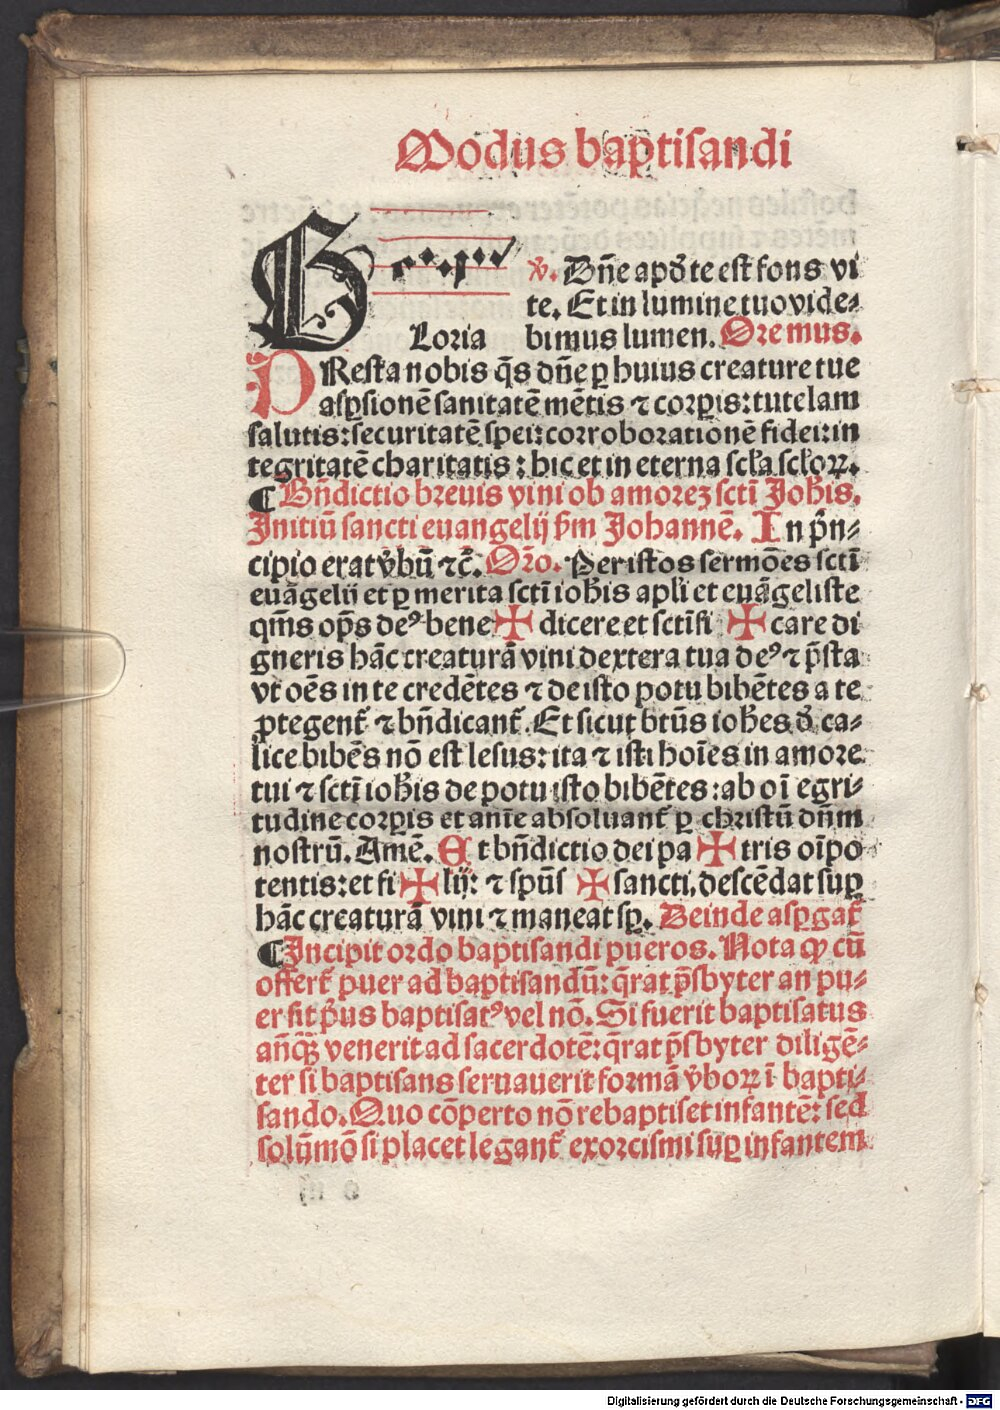 Modus baptisandi
℣. Dn̄e apd̕ te est fons vi
te. Et in lumine tuo vide⸗
Gloria bimus lumen. Oremus.
PResta nobis q̄s dn̄e ꝑ huius creature tue
aspsionē sanitatē mētis ⁊ corpis: tutelam
salutis: securitatē spei: corroborationē fidei: in
tegritatē charitatis: hic et in eterna scła scłoꝝ.
¶ Bn̄dictio breuis vini ob amorez scti Joh̄is.
Initiū sancti euangelij ẜm Johannē. In p̄n⸗
cipio erat v̕bū ⁊c̄. Or̄o. Per istos sermōes sctī
euāgelij et ꝑ merita sctī ioh̄is apłi et euāgeliste
qm̄s op̄s deꝰ bene ✠ dicere et sctīfi ✠ care di
gneris hāc creaturā vini dextera tua deꝰ ⁊ p̄sta
vt oēs in te credētes ⁊ de isto potu bibētes a te
ꝓtegent᷑ ⁊ bn̄dicant᷑. Et sicut btūs ioh̄es d̕ ca⸗
lice bibēs nō est lesus: ita ⁊ isti hoīes in amore
tui ⁊ sctī ioh̄is de potu isto bibētes: ab oī egri⸗
tudine corpis et anīe absoluant᷑ ꝑ christū dn̄m
nostrū. Amē. Et bn̄dictio dei pa ✠ tris oīpo
tentis: et fi ✠ lij: ⁊ spūs ✠ sancti, descēdat suꝑ
hāc creaturā vini ⁊ maneat sꝑ. Deinde aspgat᷑
¶ Incipit ordo baptisandi pueros. Nota ꝙ cū
offert᷑ puer ad baptisandū: q̄rat p̄sbyter an pu⸗
er sit p̕us baptisatꝰ vel nō. Si fuerit baptisatus
añq̄ꝫ venerit ad sacerdotē: q̄rat p̄sbyter diligē⸗
ter si baptisans seruauerit formā v̕boꝝ ī bapti⸗
sando. Quo cōperto nō rebaptiset infantē: sed
solūmō si placet legant᷑ exorcismi suꝑ infantem
Digitalisierung gefördert durch die Deutsche Forschungsgemeinschaft - DFG